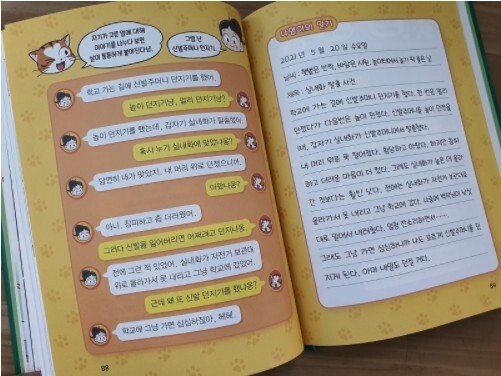 자기가 고른 일에 대해
이야기를 나누다 보면
글이 통통하게 붙어진다냥.
그럼 난
신발주머니 던지기.
학교 가는 길에 신발주머니 던지기를 했어.
높이 던지기냥, 멀리 던지기냥?
높이 던지기를 했는데, 갑자기 실내화가 탈출했어.
혹시 누가 실내화에 맞았나옹?
당연히 내가 맞았지. 내 머리 위로 떨어졌으니까.
아팠냐옹?
아니, 창피하고 좀 더러웠어.
그러다 신발을 잃어버리면 어쩌려고 던지냐옹.
전에 그런 적 있었어. 실내화가 자전거 보관대
위로 올라가서 못 내리고 그냥 학교에 갔었어.
근데 왜 또 신발 던지기를 했냐옹?
학교에 그냥 가면 심심하잖아, 헤헤.
88
나몽이의 일기
2021년 5월 20일 수요일
날씨: 햇볕은 반짝, 바람은 시원, 놀이터에서 놀기 딱 좋은 날
제목: 실내화 탈출 사건
학교에 가는 길에 신발주머니 던지기를 했다. 한 번은 멀리
던졌다가 다음번은 높이 던졌다. 신발주머니를 높이 던졌을
때, 갑자기 실내화가 신발주머니에서 탈출했다.
내 머리 위로 뚝 떨어졌다. 황당하고 아팠다. 하지만 창피
하고 더러운 마음이 더 컸다. 그래도 실내화가 높은 데 올라
간 것보다는 훨씬 낫다. 전에는 실내화가 자전거 보관대로
올라가서 못 내리고 그냥 학교에 갔다. 나중에
대로 밀어서 내려줬다. 엄청 잔소리하면서……
그래도 그냥 가면 심심하니까 나도 모르게 신발주머니를 던
지게 된다. 아마 내일도 던질 거다.
89